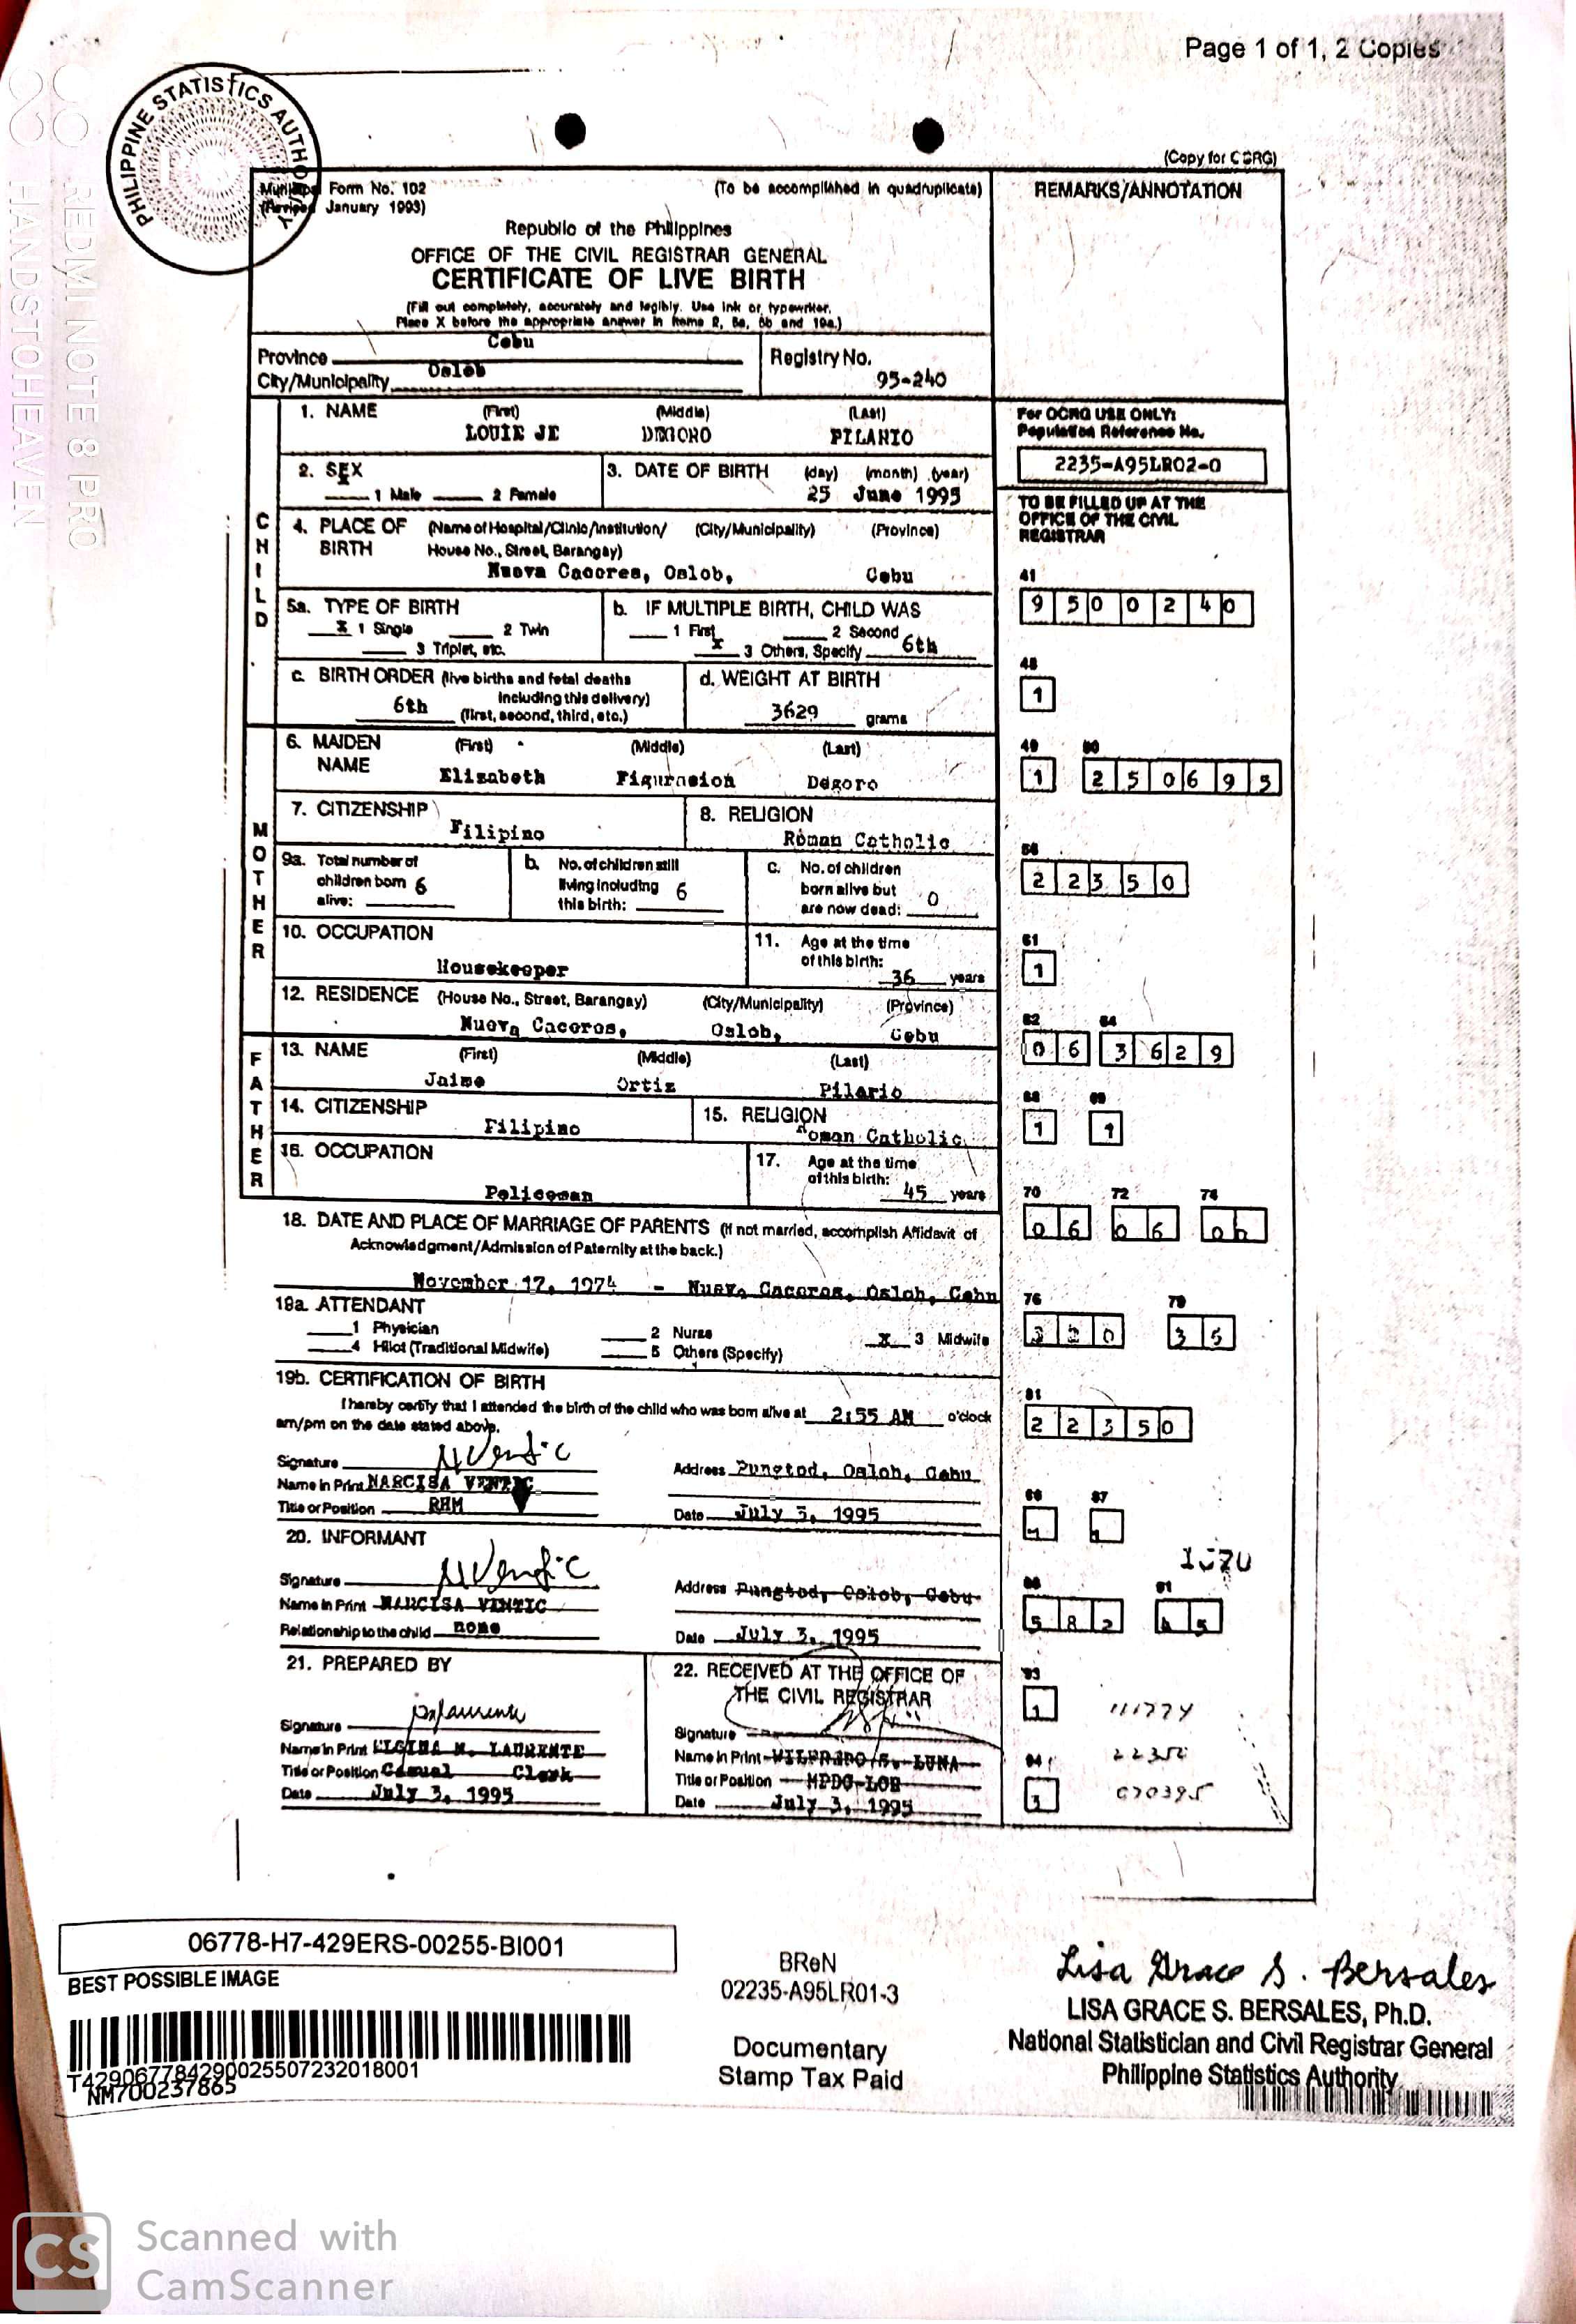 Page 1 of 1, 2 Copies
PHILIPPINE STATISTICS AUTHORITY
REDMI NOTE 8 PRO
HANDSTOHEAVEN
(Copy for OCRG)
Municipal Form No. 102
(To be accomplished in quadruplicate)
REMARKS/ANNOTATION
(Revised January 1993)
Republic of the Philippines
OFFICE OF THE CIVIL REGISTRAR GENERAL
CERTIFICATE OF LIVE BIRTH
(Fill out completely, accurately and legibly. Use ink or typewriter.
Place X before the appropriate answer in items 2, 5a, 5b and 19a.)
Province Cebu
Registry No.
City/Municipality Oslob
95-240
CHILD
1. NAME (First) (Middle) (Last)
LOUIE JE PILARIO
For OCRG USE ONLY:
Population Reference No.
2235-A95LR02-0
2. SEX
X 1 Male 2 Female
3. DATE OF BIRTH (day) (month) (year)
25 June 1995
TO BE FILLED UP AT THE
OFFICE OF THE CIVIL
REGISTRAR
4. PLACE OF BIRTH (Name of Hospital/Clinic/Institution/ (City/Municipality) (Province)
House No., Street, Barangay)
Nueva Caceres, Oslob, Cebu
41
9 5 0 0 2 4 0
5a. TYPE OF BIRTH
X 1 Single 2 Twin
3 Triplet, etc.
b. IF MULTIPLE BIRTH, CHILD WAS
1 First 2 Second
X 3 Others, Specify 6th
48
1
c. BIRTH ORDER (live births and fetal deaths
including this delivery)
6th (first, second, third, etc.)
d. WEIGHT AT BIRTH
3629 grams
MOTHER
6. MAIDEN NAME (First) (Middle) (Last)
Elizabeth Figuracion Degoro
49 50
1 2 5 0 6 9 5
7. CITIZENSHIP
Filipino
8. RELIGION
Roman Catholic
56
2 2 3 5 0
9a. Total number of
children born 6
alive:
b. No. of children still
living including 6
this birth:
c. No. of children
born alive but 0
are now dead:
10. OCCUPATION
Housekeeper
11. Age at the time
of this birth:
36 years
61
1
12. RESIDENCE (House No., Street, Barangay) (City/Municipality) (Province)
Nueva Caceres, Oslob, Cebu
62 64
0 6 3 6 2 9
FATHER
13. NAME (First) (Middle) (Last)
Jaime Ortiz Pilario
14. CITIZENSHIP
Filipino
15. RELIGION
Roman Catholic
68 69
1 1
16. OCCUPATION
Policeman
17. Age at the time
of this birth:
45 years
70 72 74
0 6 0 6 0 0
18. DATE AND PLACE OF MARRIAGE OF PARENTS (If not married, accomplish Affidavit of
Acknowledgment/Admission of Paternity at the back.)
November 17, 1974 - Nueva Caceres, Oslob, Cebu
76 79
3 2 0 3 5
19a. ATTENDANT
1 Physician 2 Nurse X 3 Midwife
4 Hilot (Traditional Midwife) 5 Others (Specify)
19b. CERTIFICATION OF BIRTH
I hereby certify that I attended the birth of the child who was born alive at 2:55 AM o'clock
am/pm on the date stated above.
81
2 2 3 5 0
Signature
Name in Print NARCISA VENTIC
Title or Position RHM
Address Pungtod, Oslob, Cebu
Date July 3, 1995
86 87
20. INFORMANT
Signature
Name in Print NARCISA VENTIC
Relationship to the child none
Address Pungtod, Oslob, Cebu
Date July 3, 1995
88 91
5 8 2 4 5
21. PREPARED BY
Signature
Name in Print LIGINA M. LAURENTE
Title or Position Casual Clerk
Date July 3, 1995
22. RECEIVED AT THE OFFICE OF
THE CIVIL REGISTRAR
Signature
Name in Print WILFREDO LUNA
Title or Position MPDC-LCR
Date July 3, 1995
93
1
111774
22350
94
3
070395
06778-H7-429ERS-00255-BI001
BEST POSSIBLE IMAGE
T429067784290025507232018001
NM700237865
BReN
02235-A95LR01-3
Documentary
Stamp Tax Paid
Lisa Grace S. Bersales
LISA GRACE S. BERSALES, Ph.D.
National Statistician and Civil Registrar General
Philippine Statistics Authority
CS
Scanned with
CamScanner